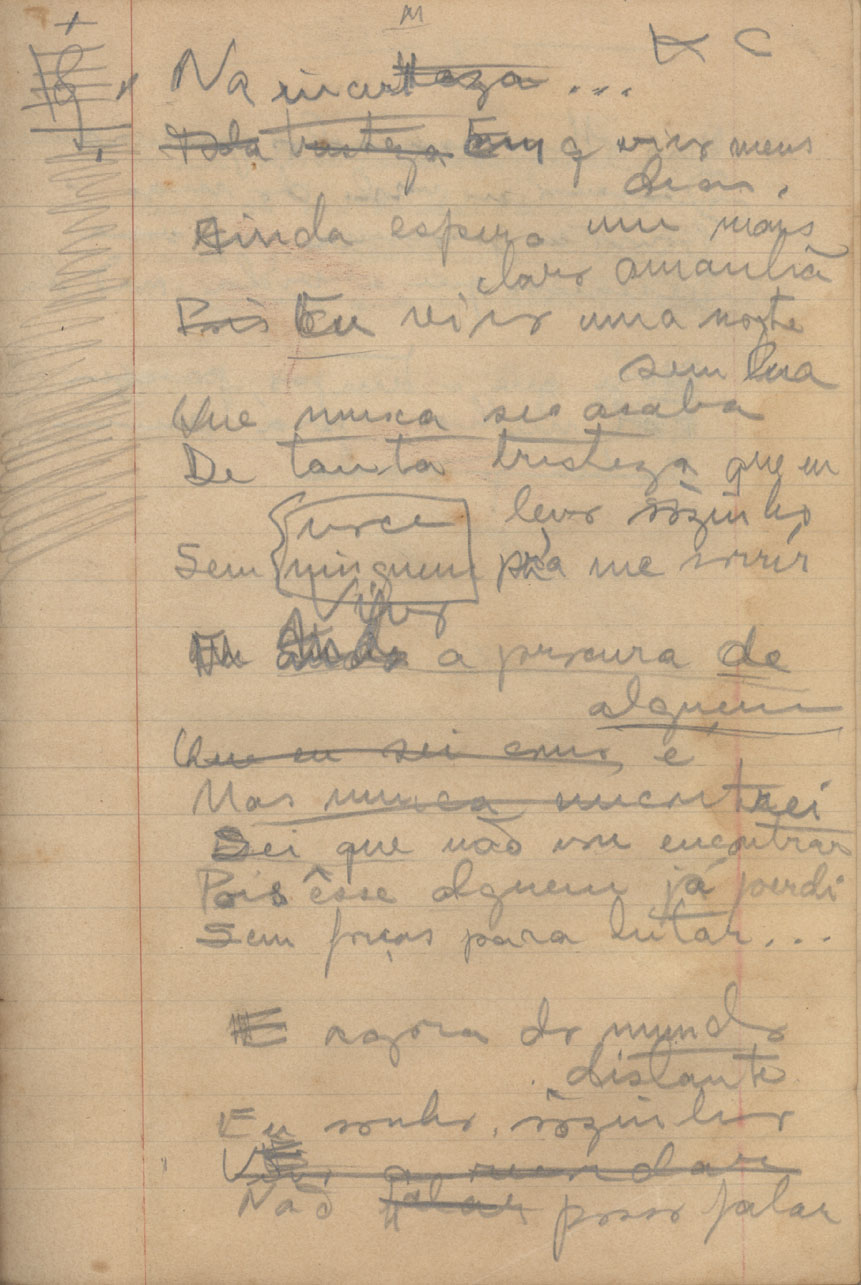 M
Na incerteza ...
Toda tristeza Em q vivo meus
dias,
Ainda espero um mais
claro amanhã
Pois Eu vivo uma noite
sem lua
Que nunca se acaba
De tanta tristeza que eu
levo sòzinho
você
Sem ninguem pra me sorrir
Vivo
a procura de
alguem
Que eu sei como é
Mas nunca encontrei
Sei que não vou encontrar
Pois êsse alguem já perdi
Sem forças para lutar...
E agora do mundo
distante
Eu sonho, sòzinho
Não falar posso falar